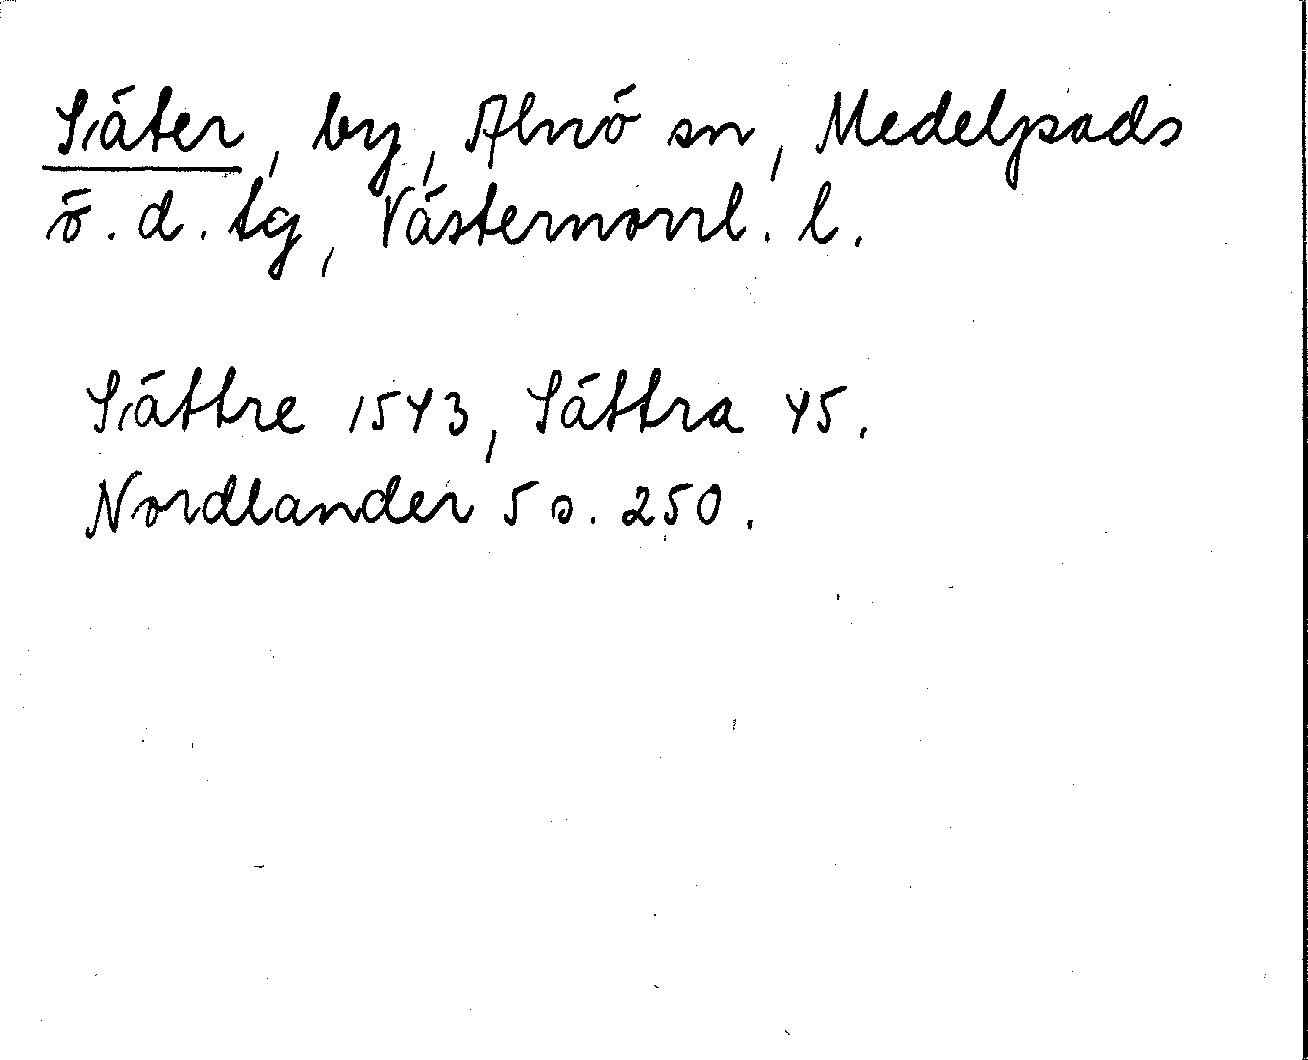 Säter, by, Alnö sn, Medelpads
ö. d. tg, Västernorrl. l.
Sättre 1543, Sättra 45.
Nordlander 5 s. 250.